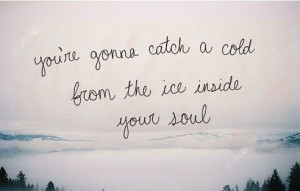 you're gonna catch a cold
from the ice inside
your soul